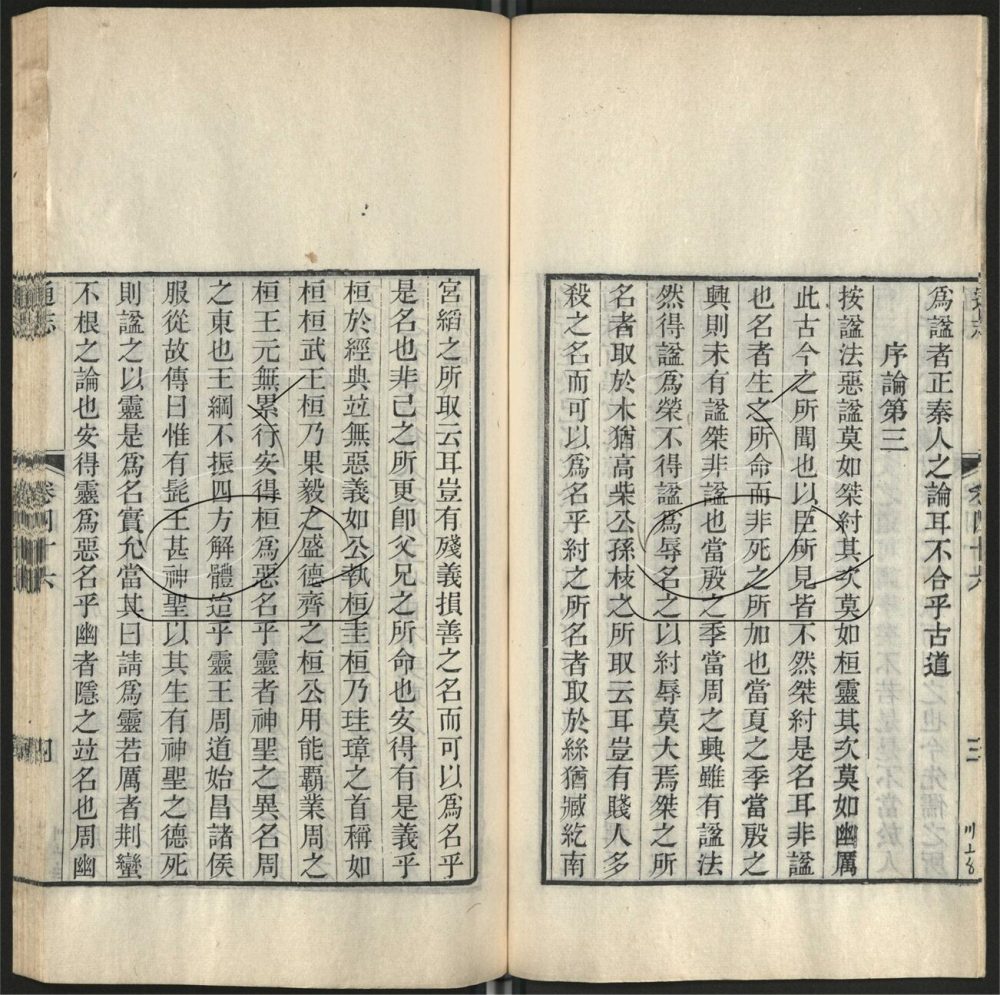 爲諡者正秦人之論耳不合乎古道
序論第三
按諡法惡諡莫如桀紂其次莫如桓靈其次莫如幽厲
此古今之所聞也以臣所見皆不然桀紂是名耳非諡
也名者生之所命而非死之所加也當夏之季當殷之
興則未有諡桀非諡也當殷之季當周之興雖有諡法
然得諡爲榮不得諡爲辱名之以紂辱莫大焉桀之所
名者取於木猶高柴公孫枝之所取云耳豈有賤人多
殺之名而可以爲名乎紂之所名者取於絲猶臧紇南
宮縚之所取云耳豈有殘義損善之名而可以爲名乎
是名也非己之所更卽父兄之所命也安得有是義乎
桓於經典竝無惡義如公執桓圭桓乃珪璋之首稱如
桓桓武王桓乃果毅之盛德齊之桓公用能霸業周之
桓王元無累行安得桓爲惡名乎靈者神聖之異名周
之東也王綱不振四方解體迨乎靈王周道始昌諸侯
服從故傳曰惟有髭王甚神聖以其生有神聖之德死
則諡之以靈是爲名實允當其曰請爲靈若厲者荆蠻
不根之論也安得靈爲惡名乎幽者隱之竝名也周幽
通志
卷四十六
四
三